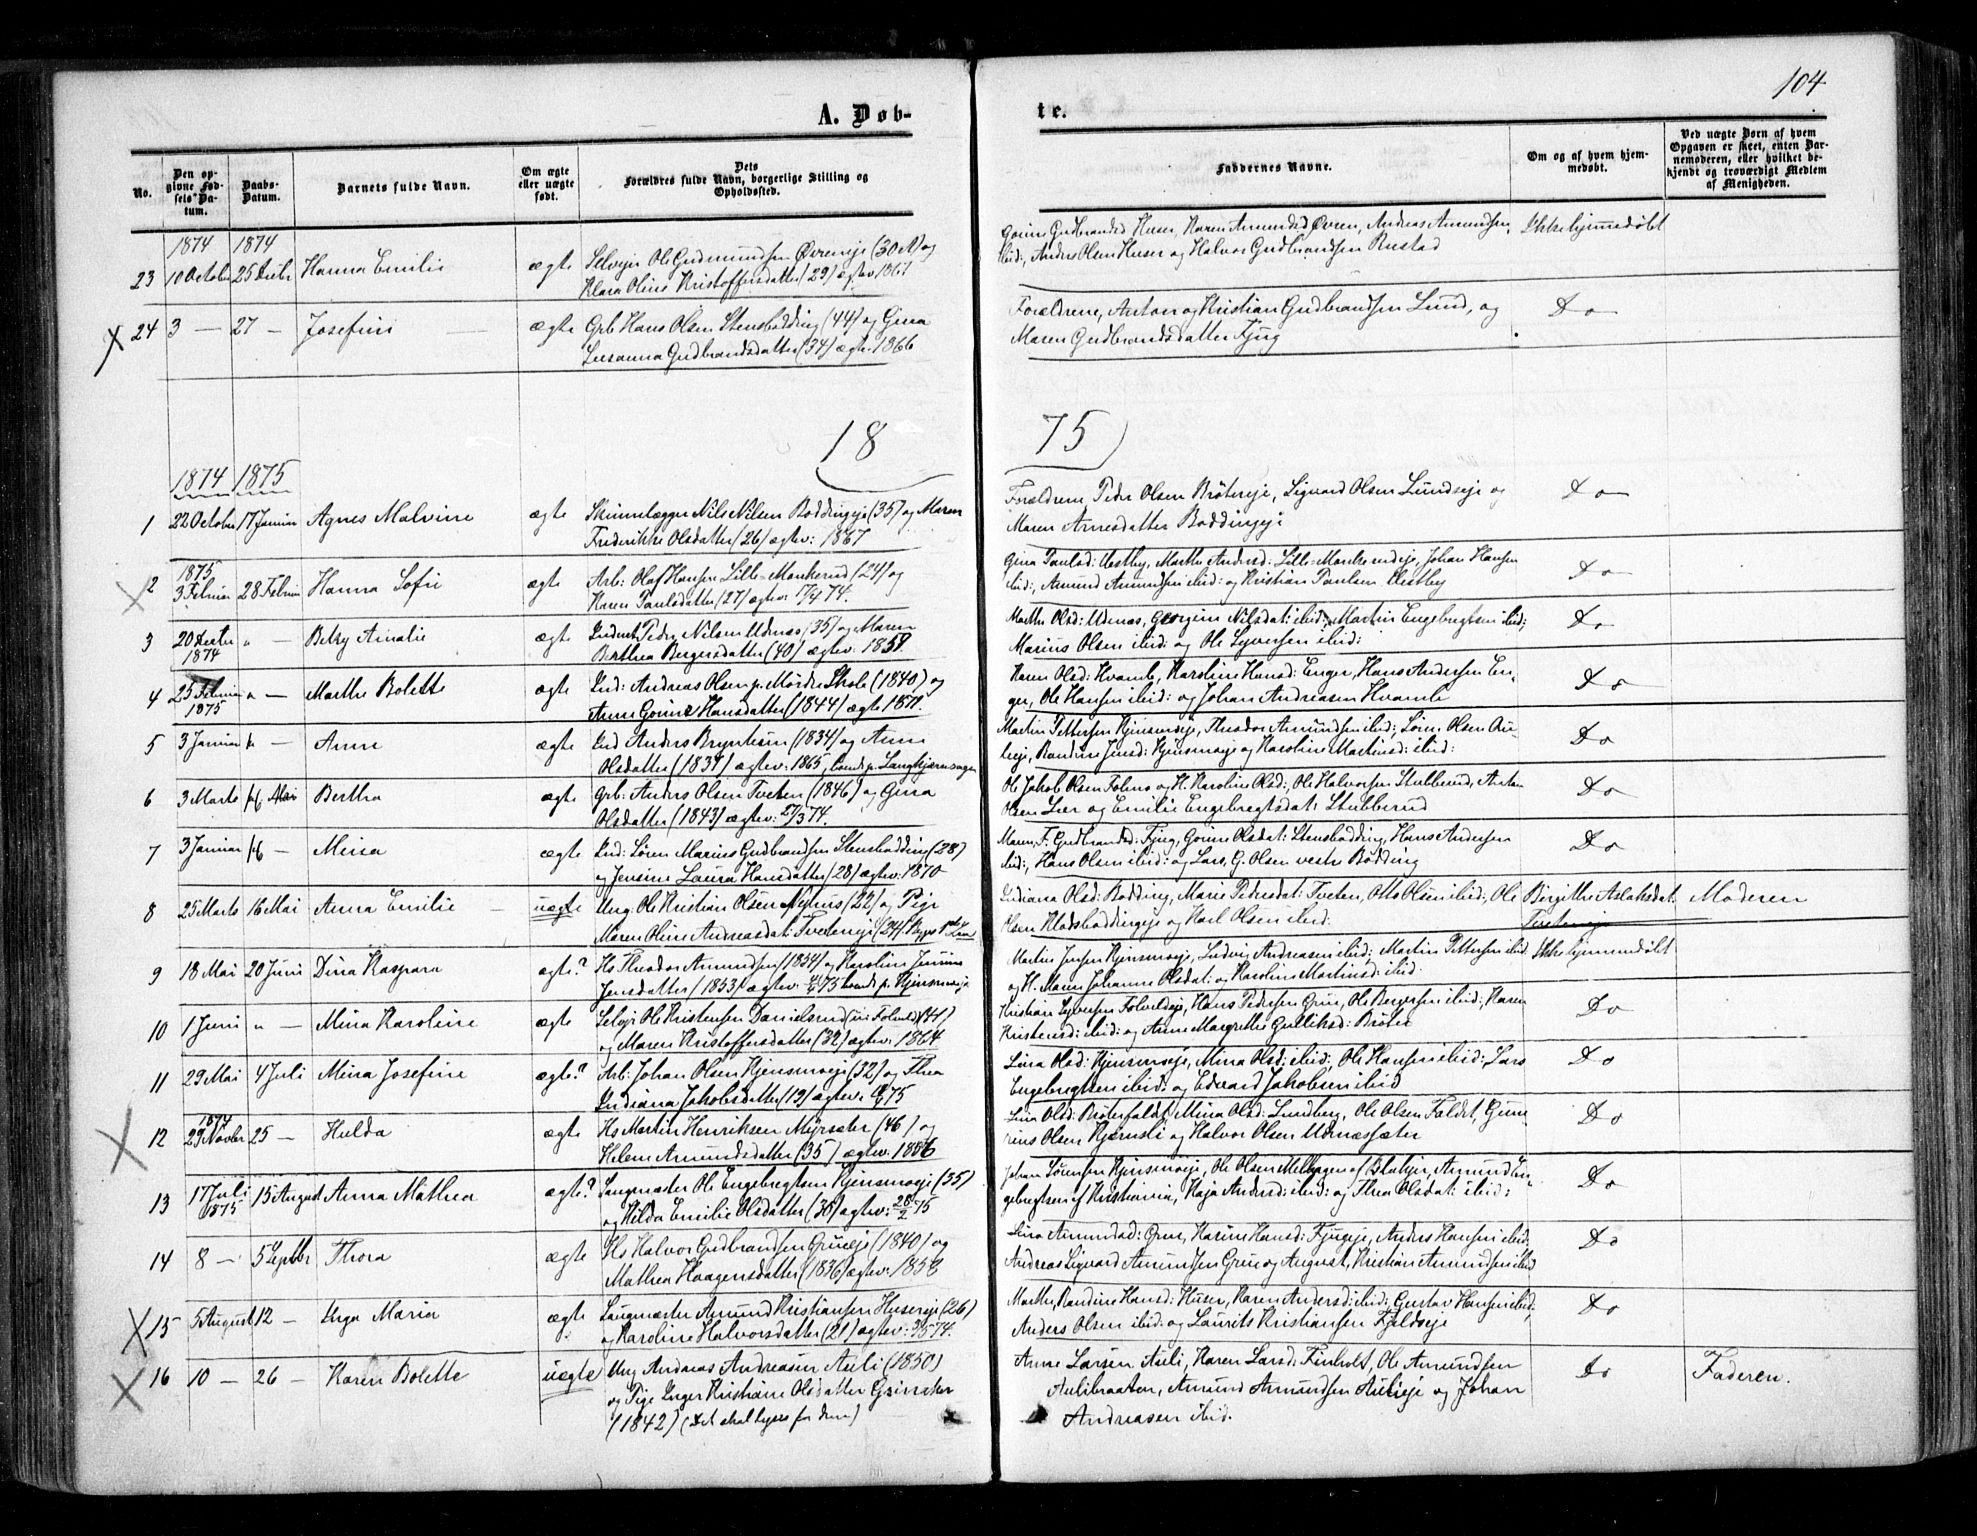 104
A. Døb-
te.
No.
Den op-
givne Fød-
sels-Da-
tum.
Daabs-
Datum.
Barnets fulde Navn.
Om ægte
eller uægte
født.
Dets
Forældres fulde Navn, borgerlige Stilling og
Opholdssted.
Faddernes Navne.
Om og af hvem hjem-
medøbt.
Ved uægte Børn af hvem
Opgaven er skeet, enten Bar-
nemoderen, eller hvilket be-
kjendt og troværdigt Medlem
af Menigheden.
1874 1874
23 10 October 25 Hanna Emilie ægte Selvejer Ole Gudmundsen Øvreneje (30) og
Klara Oline Kristoffersdatter (29) ægtev 1867
Gorine Gudbrandsd Huser, Karen Amundsd Øvren, Andreas Amundsen
ibid:, Anders Olsen Huser og Halvor Gudbrandsen Rustad
Ikke hjemmedøbt
24 3 — 27 — Josefine ægte Grb Hans Olsen Stensbødding (44) og Gina
Susanna Gudbrandsdatter (34) ægtev. 1866
Forældrene, Anton og Kristian Gudbrandsen Lund, og
Maren Gudbrandsdatter Fjug
Do
18 75
1874 1875
1 22 October 17 Januar Agnes Malvine ægte Skindlægger Nils Nilsen Boddingeje (35) og Maren
Frederikke Olsdatter (26) ægtev: 1867
Forældrene Peder Olsen Bröterеje, Sigvard Olsen Lundseje og
Maren Arnesdatter Boddingeje
Do
1875
2 3 Februar 28 Februar Hanna Sofie ægte Arb: Olaf Hansen Lille-Monkerud (24) og
Karen Paulsdatter (27) ægtev: 17/4 74.
Gina Paulsd: Vestby, Marthe Andersd: Lille-Monkerudeje, Johan Hansen
ibid:, Amund Amundsen ibid: og Kristian Paulsen Vestby
Do
3 20 1874 " — Betzy Amalie ægte Inderst Peder Nilsen Udnæs (35) og Maren
Berthea Bergersdatter (40) ægtev: 1859.
Marthe Olsd: Udnæs, Georgine Nilsdat: ibid:, Martin Engebregtsen ibid;
Marius Olsen ibid: og Ole Syversen ibid:
Do
4 25 Februar 1875 " — Marthe Bolette ægte Ind: Andreas Olsen p. Mordre Skole (1840) og
Anne Gorine Hansdatter (1844) ægtev 1871.
Karen Olsd: Hvamb, Karoline Hansd: Enger, Hans Andersen En-
ger, Ole Hansen ibid: og Johan Andreasen Hvamb
Do
5 3 Januar — Anne ægte Ind Anders Bryntesen (1834) og Anne
Olsdatter (1837) ægtev: 1865,
Martin Pettersen Kjensmoeje, Theodor Amundsen ibid:, Sören Olsen Au-
lieje, Randine Jensd: Kjensmoeje og Karoline Martinsd: ibid:
Do
6 3 Marts Mai Bertha ægte Grb: Anders Olsen Tveten (1846) og Gina
Olsdatter (1843) ægtev: 27/3 74.
Ole Jakob Olsen Folmo og H. Karoline Olsd:, Ole Halvorsen Stubberud, Anton
Olsen Lier og Emilie Engebregtsdat: Stubberud
Do
7 3 Januar — Mina ægte Ind: Sören Marius Gudbrandsen Stensbødding (28)
og Jensine Laura Hansdatter (28) ægtev: 1870
Maren F. Gudbrandsd: Fjug, Gorine Olsdat: Stensbødding, Hans Andersen
ibid:, Hans Olsen ibid: og Lars G. Olsen vestre Bødding
Do
8 25 Marts 16 Mai Anna Emilie uægte Ung: Ole Kristian Olsen (22) og Pige
Maren Oline Andreasdat: Tveteneje (24)
Indiana Olsd: Bodding, Marie Pedersdat: Tveten, Otto Olsen ibid:, Ole
Olsen Kladsboddingeje og Karl Olsen ibid:
Birgitthe Aslaksdat:
Moderen
9 18 Mai 20 Juni Dina Kaspara ægte? Hs Theodor Amundsen (1854) og Karoline Jensine
Jensdatter (1853) ægtev: 75 Kjensmoeje
Martin Jensen Kjensmoeje, Ludvig Andreasen ibid:, Martin Pettersen ibid:
og H. Maren Johanne Olsdat: og Karoline Martinsd: ibid:
Ikke hjemmedøbt
10 1 Juni " — Mina Karoline ægte Selvejer Ole Kristensen Danielsrud (41)
og Maren Kristoffersdatter (32) ægtev: 1864
Kristian Syversen Foleruldeje, Hans Pedersen Grue, Ole Bergersen ibid:, Karen
Kristensd: ibid: og Anne Margrethe Gulliksd: Bröter
Do
11 29 Mai 4 Juli Mina Josefine ægte? Arb: Johan Olsen Kjensmoeje (32) og Thea
Indiana Jakobsdatter (19) ægtev: 75
Lina Olsd: Kjensmoeje, Mina Olsd: ibid:, Ole Hansen ibid:, Lars
Engebregtsen ibid: og Edvard Jakobsen ibid
Do
1874
12 29 Novbr 25 — Hulda ægte Hs Martin Henriksen Myrsæter (46) og
Helene Amundsdatter (35) ægtev:
Lina Olsd: Bröterfaldet, Mina Olsd: Lundberg, Ole Olsen Faldet, Gune-
rius Olsen Kjærnsli og Halvor Olsen Udnæssæter
Do
13 17 Juli 1875 15 August Anna Mathea ægte? Saugmæster Ole Engebregtsen Kjensmoeje (35)
og Hilda Emilie Olsdatter (30) ægtev: 28/2 75
Johan Sörensen Kjensmoeje, Ole Olsen Melhagen af Blakjer, Amund En-
gebregtsen af Kristiania, Kaja Andersd: ibid: og Thea Olsdat: ibid:
Do
14 8 — 5 Septbr Thora ægte Hs Halvor Gudbrandsen Grueeje (1840) og
Mathea Haagensdatter (1836) ægtev: 1858
Lina Amundsd: Grue, Karine Hansd: Fjugeje, Anders Hansen ibid:,
Andreas Sigvard Amundsen Grue og August Kristian Amundsen ibid
Do
15 5 August 12 — Inga Maria ægte Saugmæster Amund Kristiansen Husereje (26)
og Karoline Halvorsdatter (21) ægtev: 74.
Marthe Randine Hansd: Huser, Karen Andersd: ibid:, Gustav Hansen ibid:,
Anders Olsen ibid: og Laurits Kristiansen Fjeldseje
Do
16 10 — 26 — Karen Bolette uægte Ung Andreas Andreasen Auli (1850)
og Pige Inger Kristine Olsdatter Grinder
(1842) (Det skal lyses for dem)
Anne Larsen Auli, Karen Larsd: Finholt, Ole Amundsen
Aulibraaten, Amund Amundsen Aulieje og Johan
Andreasen ibid.
Do
Faderen.